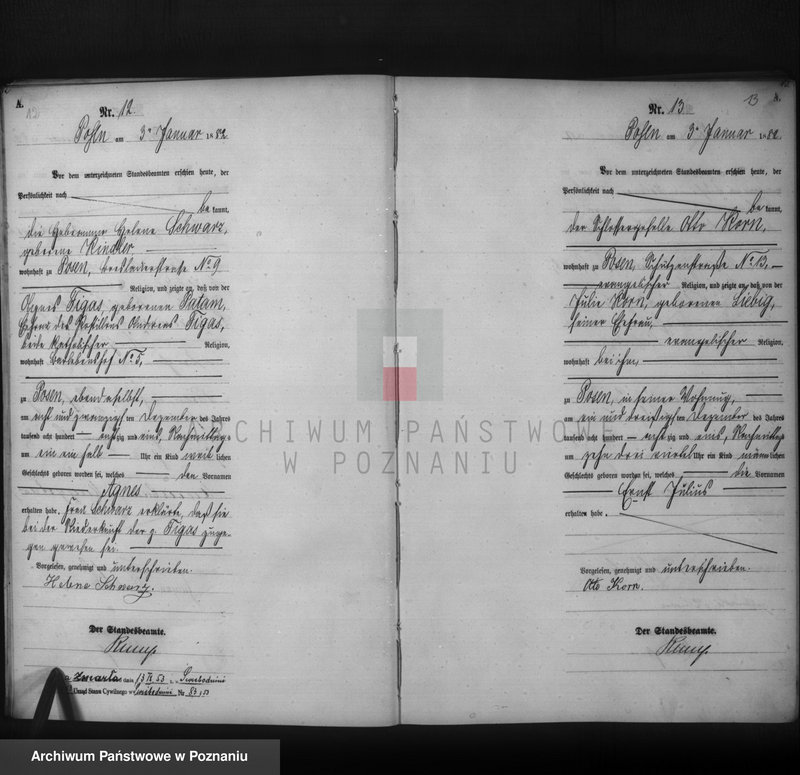 A.
12
Nr. 12.
Posen am 3n Januar 1882
Vor dem unterzeichneten Standesbeamten erschien heute, der
Persönlichkeit nach
bekannt,
die Hebeamme Helene Schwarz,
geborene Kindler
wohnhaft zu Posen, No 9
Religion, und zeigte an, daß von der
Agnes Figas, geborenen Patam,
Ehefrau des Postillons Andreas Figas,
beide katholischer Religion,
wohnhaft No 5,
zu Posen, ebendaselbst,
am acht und zwanzigsten Dezember des Jahres
tausend acht hundert achtzig und eins, Nachmittags
um ein ein halb Uhr ein Kind weiblichen
Geschlechts geboren worden sei, welches den Vornamen
Agnes
erhalten habe. Frau Schwarz erklärte, daß sie
bei der Niederkunft der p. Figas zuge-
gen gewesen sei.
Vorgelesen, genehmigt und unterschrieben.
Helene Schwarz.
Der Standesbeamte.
Zmarła dnia 13 53
Urząd Stanu Cywilnego w Nr. 83/53
13
A.
Nr. 13
Posen am 3n Januar 1882
Vor dem unterzeichneten Standesbeamten erschien heute, der
Persönlichkeit nach
bekannt,
der Schlossergeselle Otto Korn,
wohnhaft zu Posen, Schützenstraße No 13,
evangelischer Religion, und zeigte an, daß von der
Julie Korn, geborenen Liebig,
seiner Ehefrau,
evangelischer Religion,
wohnhaft bei ihm,
zu Posen, in seiner Wohnung,
am ein und dreißigsten Dezember des Jahres
tausend acht hundert achtzig und eins, Nachmittags
um zehn drei viertel Uhr ein Kind männlichen
Geschlechts geboren worden sei, welches die Vornamen
Ernst Julius
erhalten habe.
Vorgelesen, genehmigt und unterschrieben.
Otto Korn.
Der Standesbeamte.
ARCHIWUM PAŃSTWOWE
W POZNANIU
Archiwum Państwowe w Poznaniu